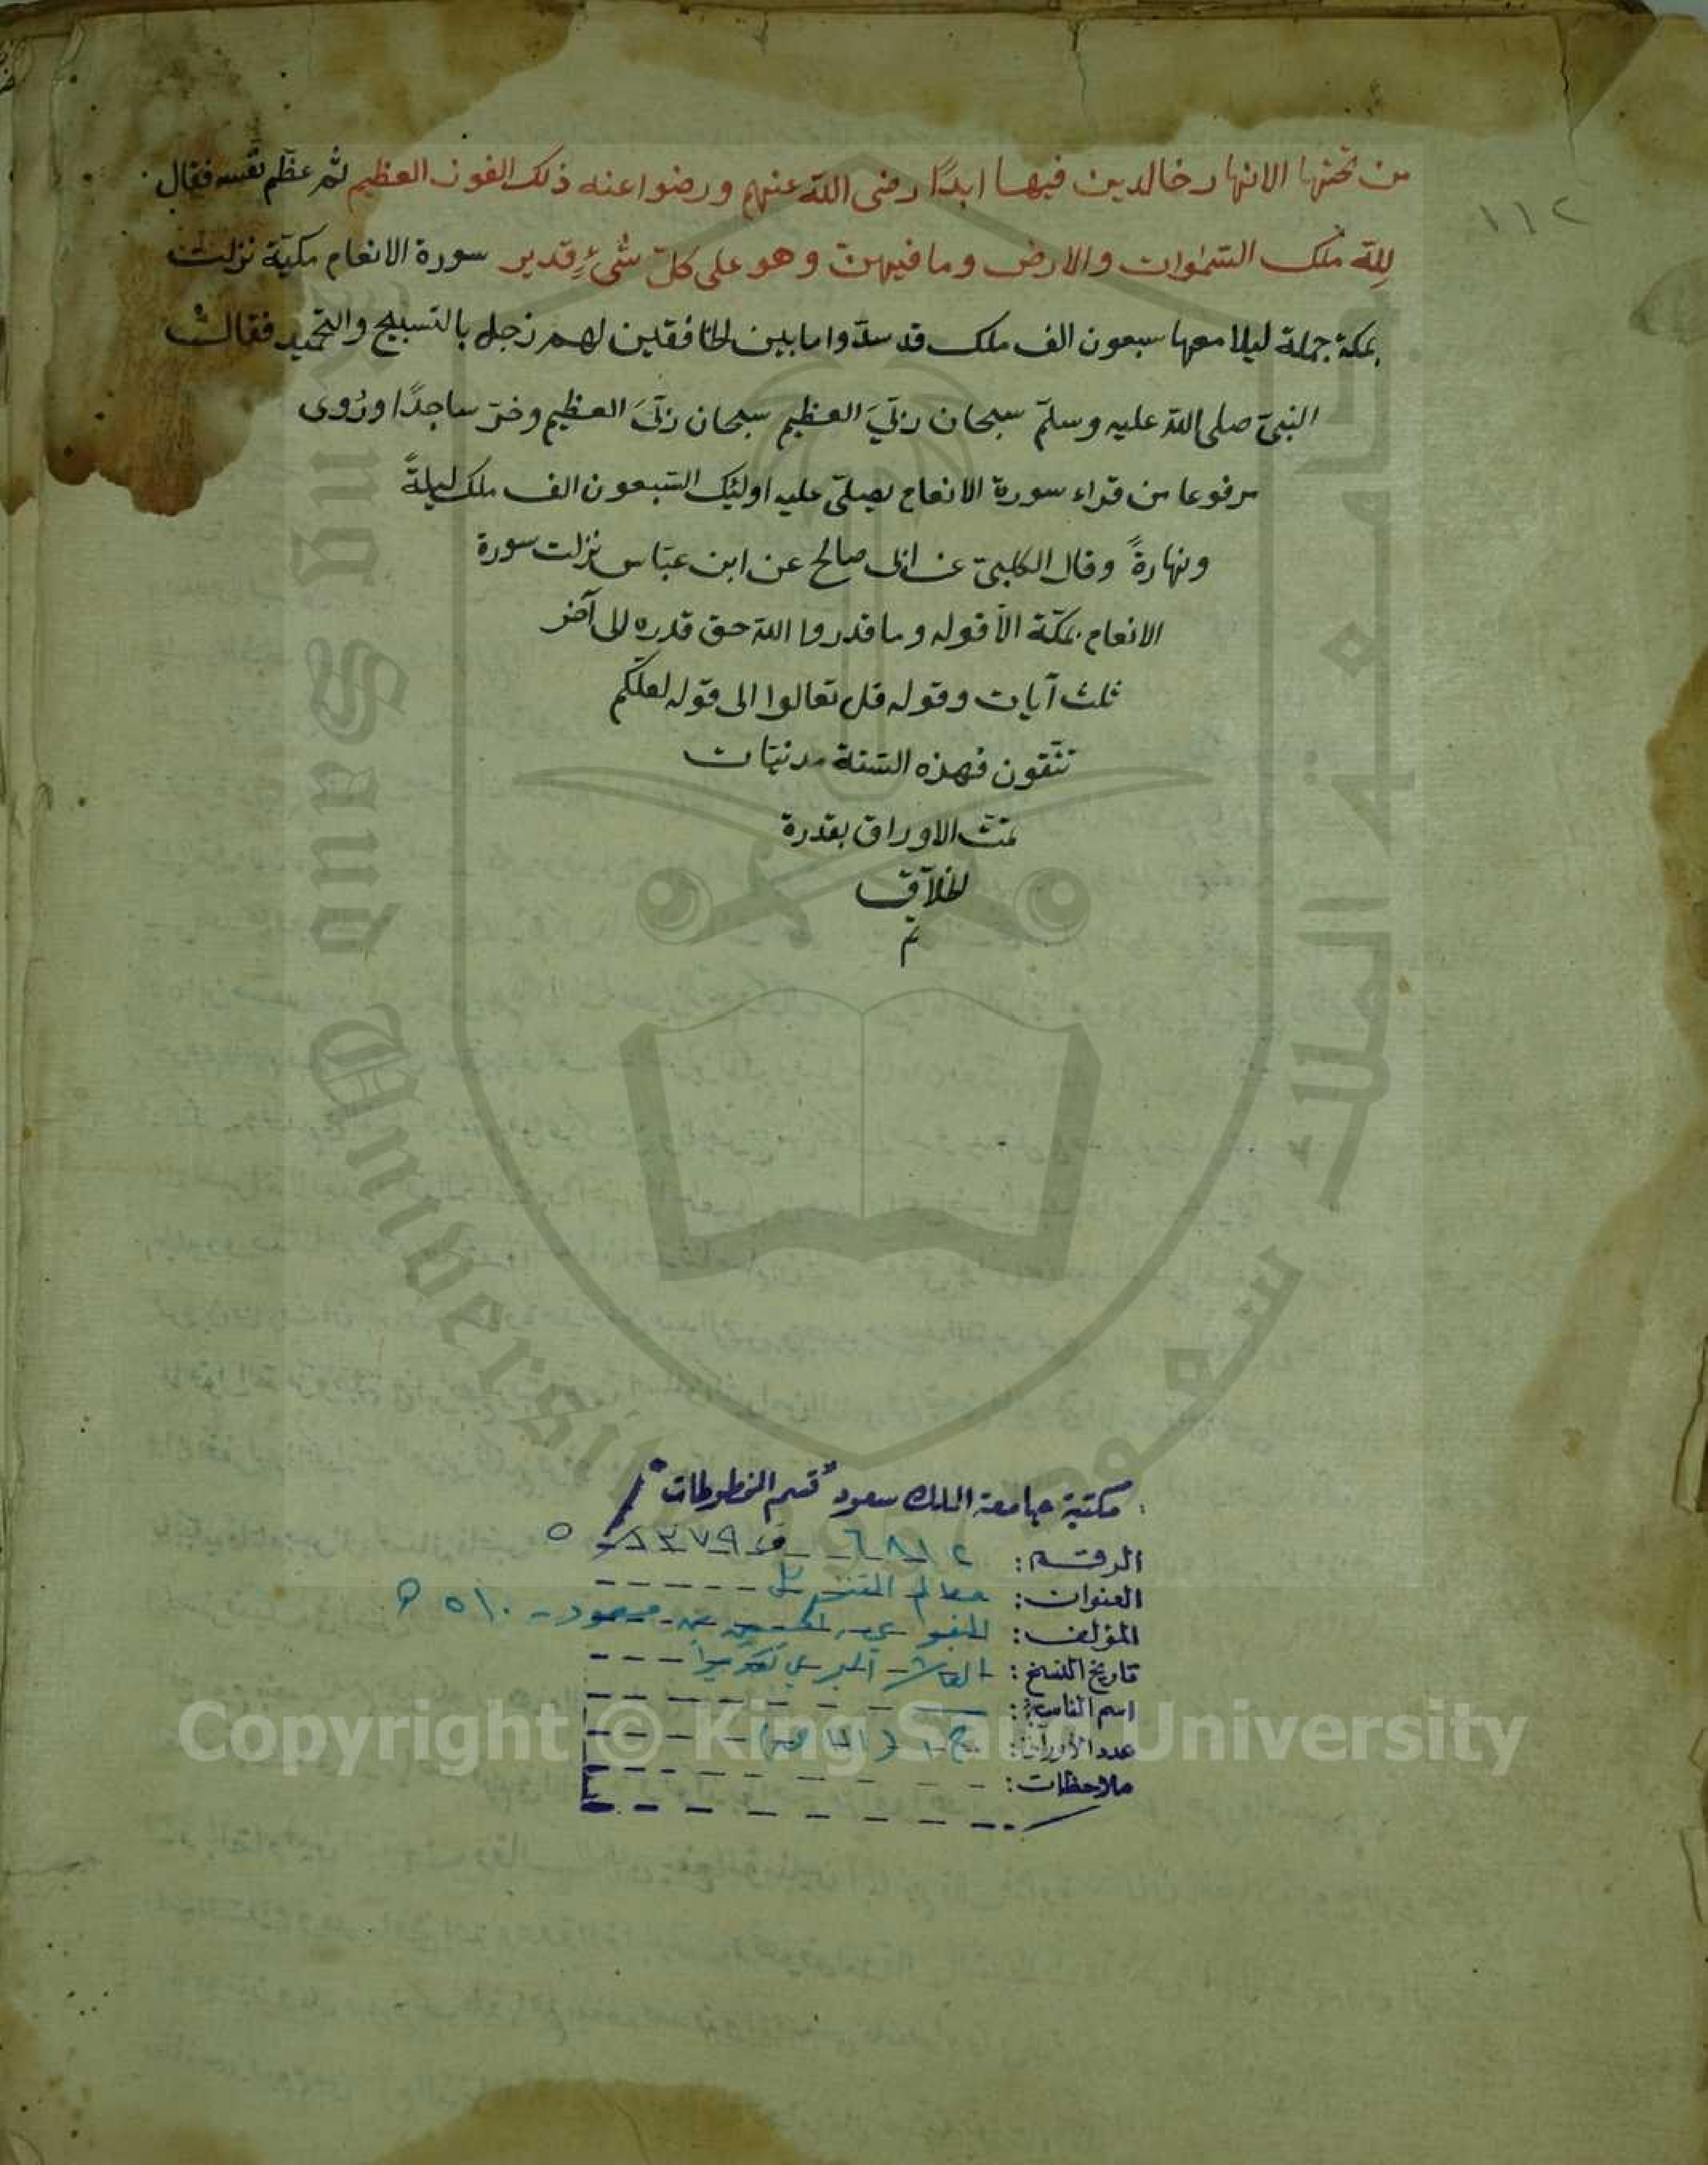 ١١٢
من تحتها الانهار خالدين فيها ابدًا رضى الله عنهم ورضوا عنه ذلك الفوز العظيم ثم عظّم نفسه فقال
لِلّه ملك السّمٰوات والارض وما فيهن وهو على كلّ شىءٍ قدير سورة الانعام مكيّة نزلت
بمكة جملة ليلا معها سبعون الف ملك قد سدّوا ما بين الخافقين لهم زجل بالتسبيح والتحميد فقال
النبىّ صلى الله عليه وسلّم سبحان ربّىَ العظيم سبحان ربّىَ العظيم وخرّ ساجدًا ورُوى
مرفوعا من قراء سورة الانعام يصلىّ عليه اولئك السّبعون الف ملك ليلةً
ونهارةً وقال الكلبىّ عن ابى صالح عن ابن عبّاس نزلت سورة
الانعام بمكّة الاّ قوله وما قدروا الله حق قدره الى آخر
ثلث آيات وقوله قل تعالوا الى قوله لعلّكم
تتّقون فهذه السّتة مدنيّات
تمّت الاوراق بقدرة
الخلاّق
تم
مكتبة جامعة الملك سعود "قسم المخطوطات"
الرقم: ٦٨١٢ ف ٨٣٧٩/٥
العنوان: معالم التنزيل
المؤلف: البغوي، الحسين بن مسعود - ٥١٠ هـ
تاريخ النسخ: العاشر الهجري تقديراً
اسم الناسخ:
عدد الأوراق: ج١
ملاحظات:
King Saud University
جامعة الملك سعود
Copyright © King Saud University